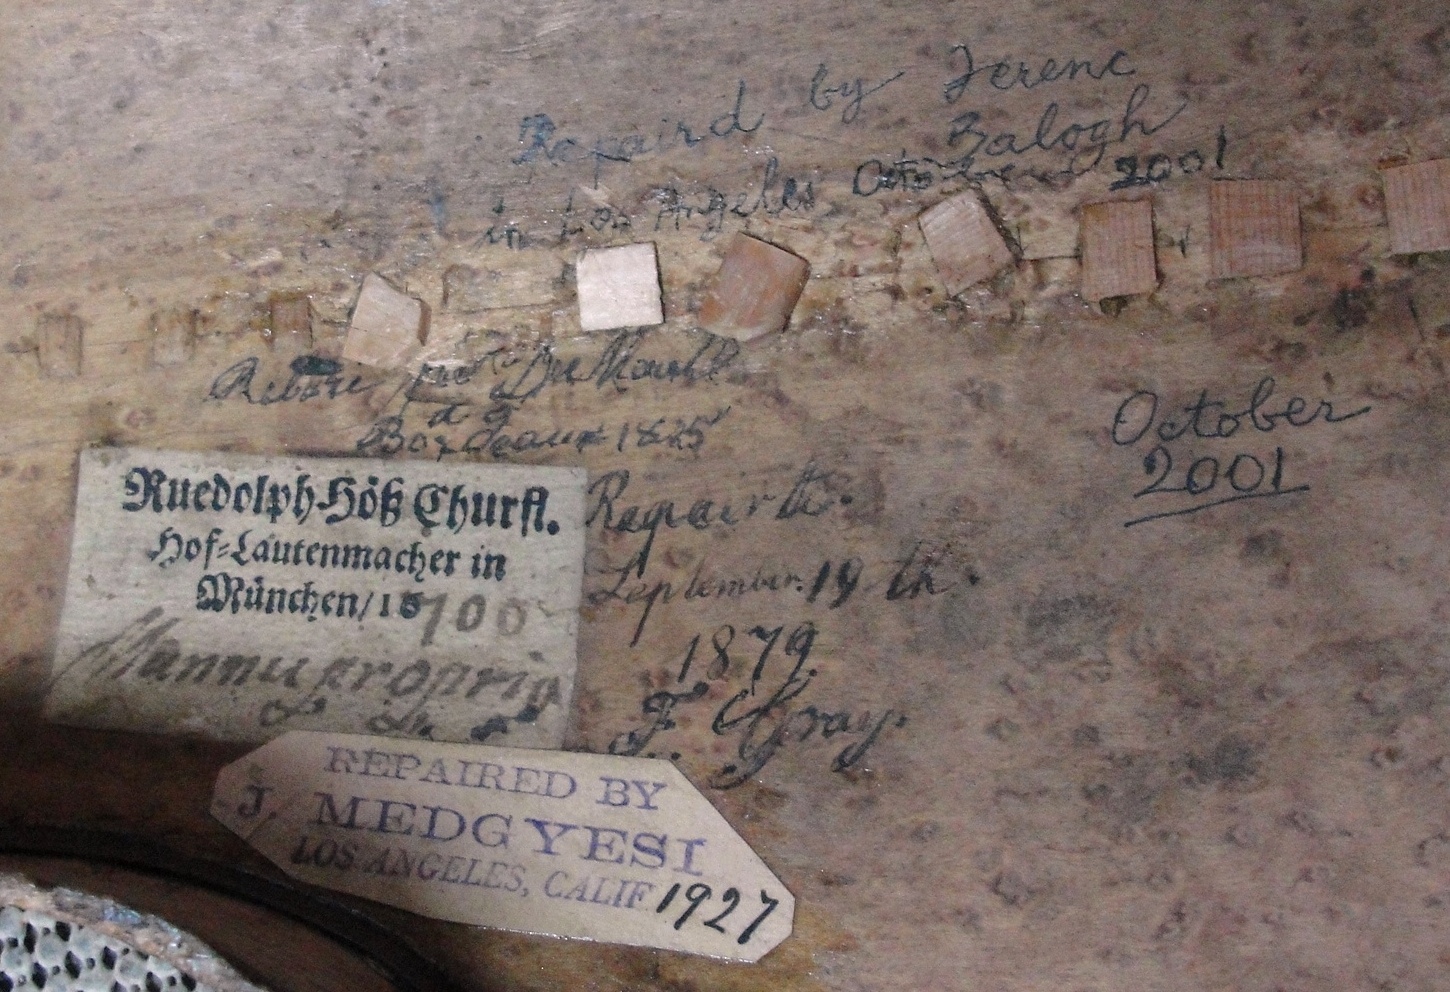 Repaird by Ferenc
Balogh
in Los Angeles October 2001
Bordeaux 1825
October
2001
Ruedolph Höß Churfl.
Hof=Lautenmacher in
München/1700
Mannu propria
Repair'd.
September. 19 th.
1879.
F Gray.
REPAIRED BY
J. MEDGYESI
LOS ANGELES, CALIF 1927